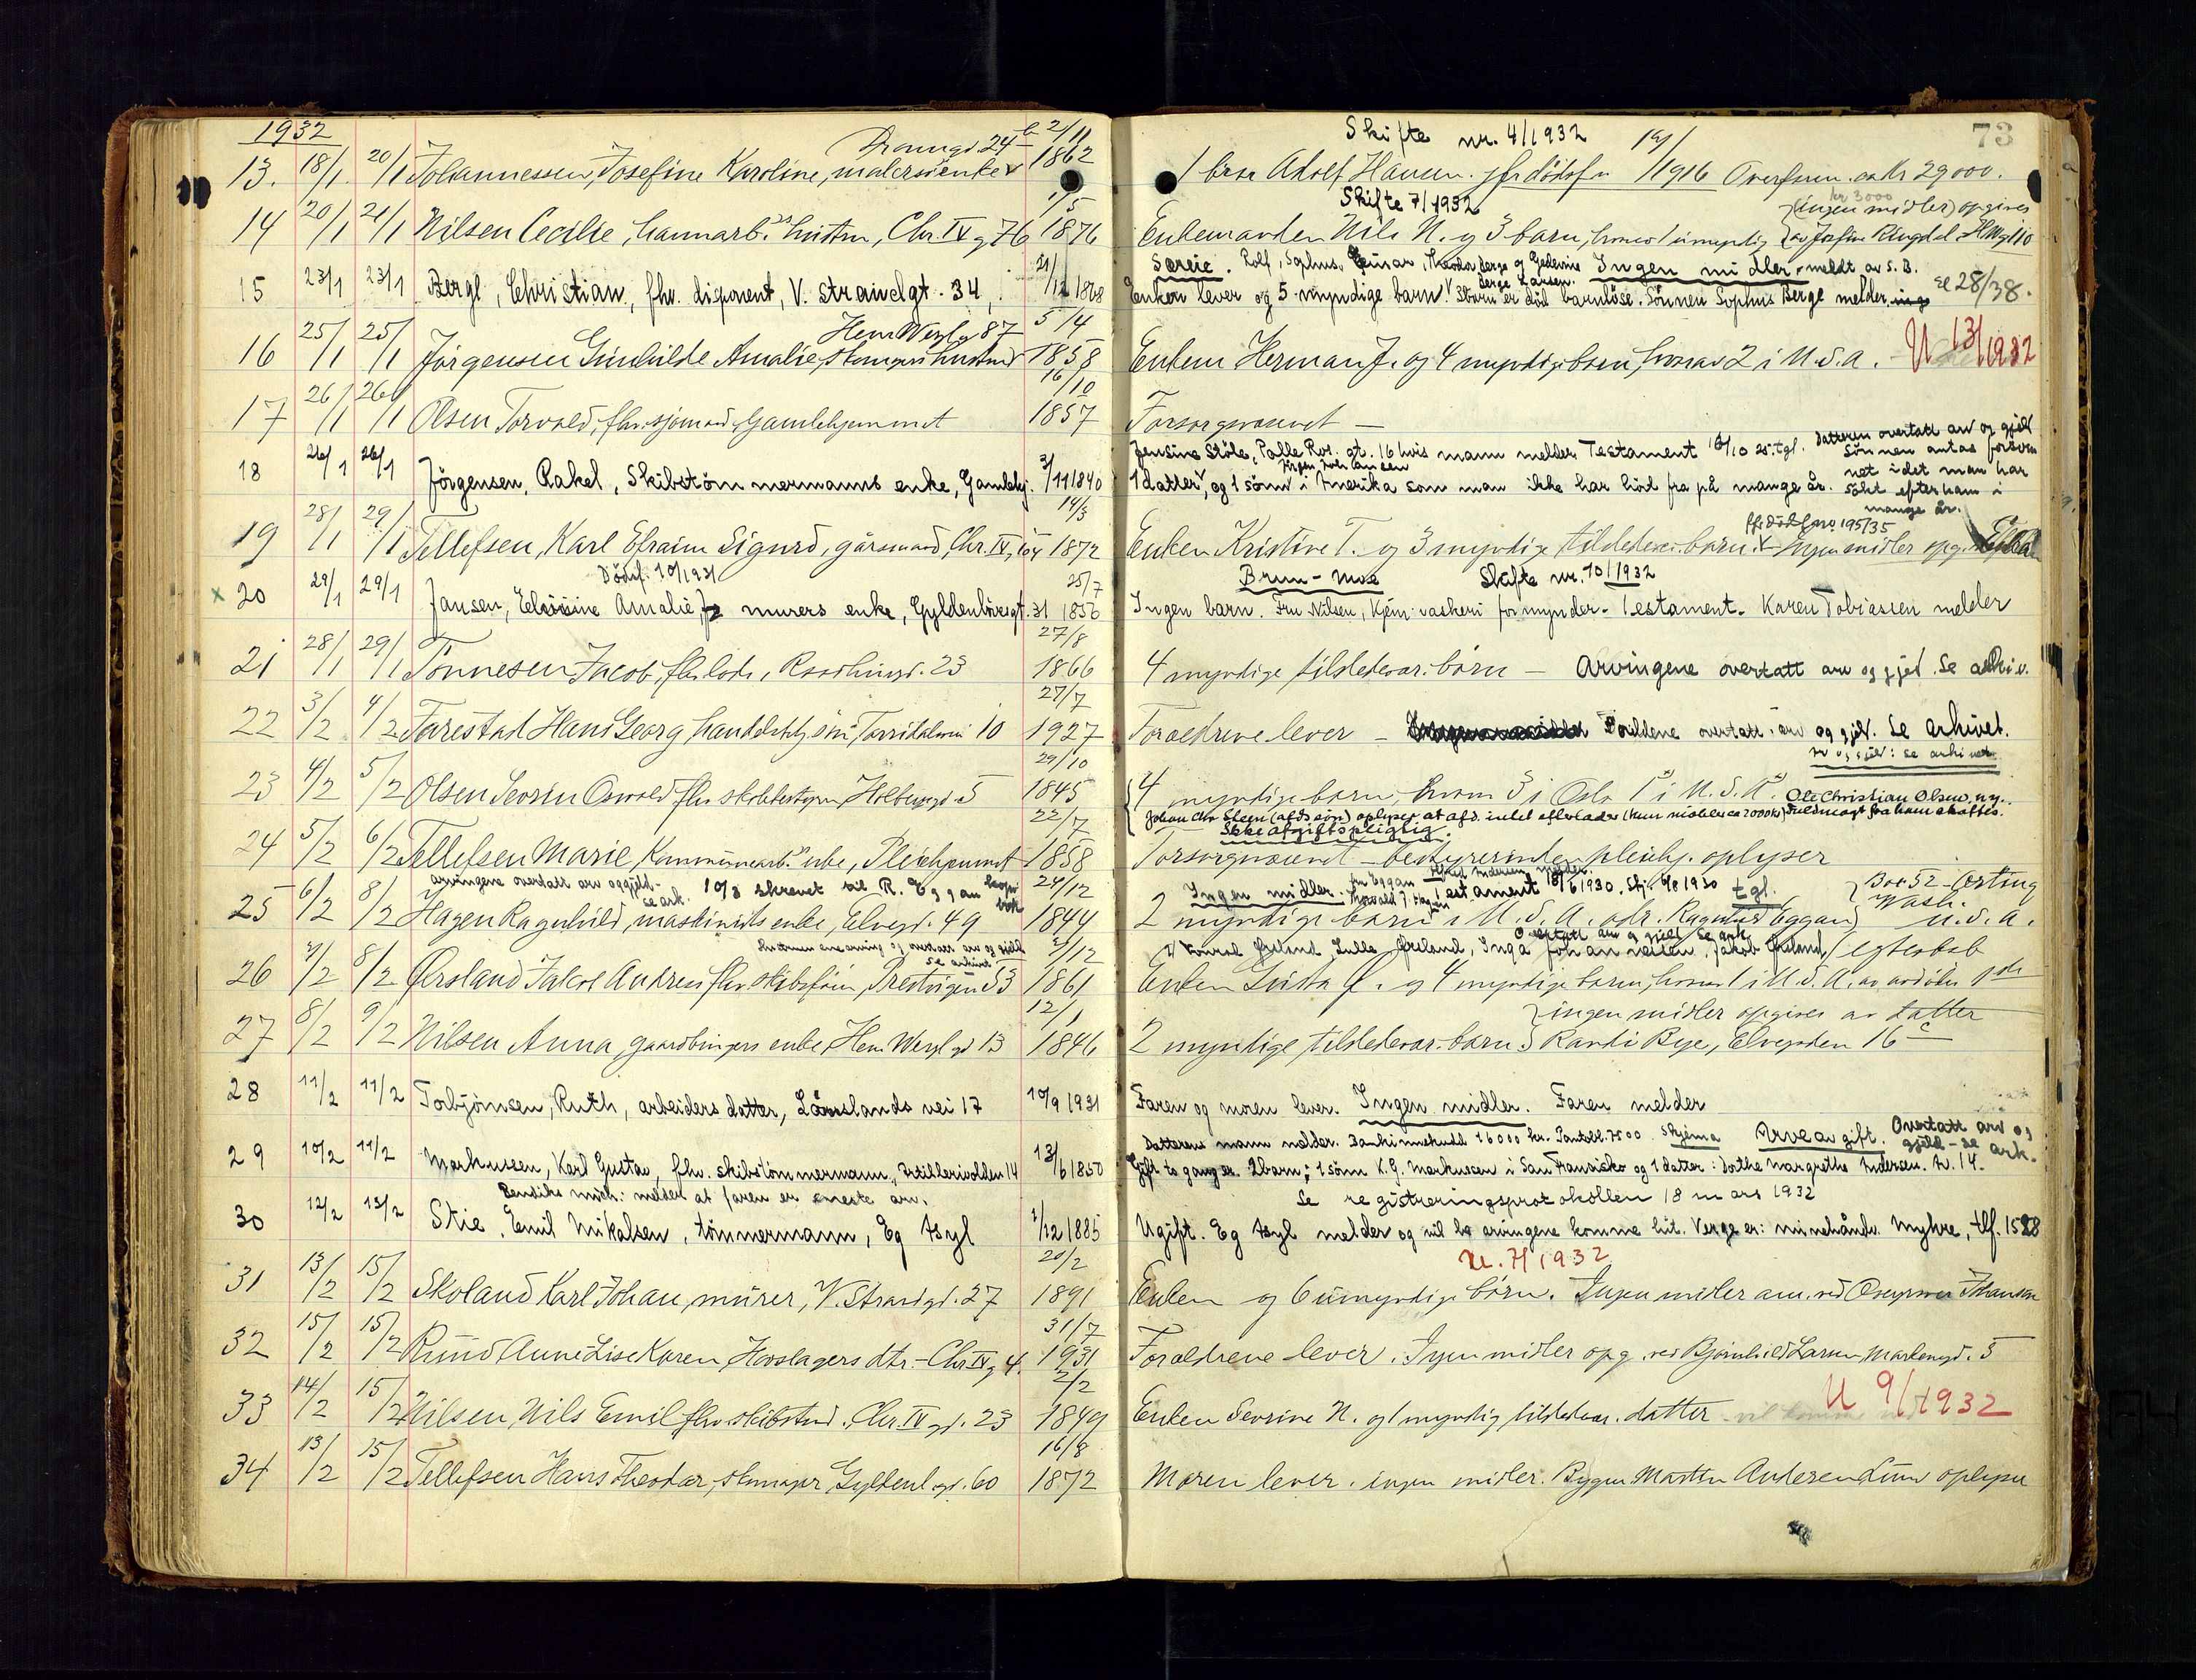 1932
73
Dronngs. 24 b 2/11
Skifte nr. 4/1932
13. 18/1 20/1 Johannessen, Josefine Karoline, malers enke 1862
1 bror Adolf Hansen. jfr dødsf 1916 Overform. ca Kr 29000.
Skifte 7/1932
kr 3000
(ingen midler) opgives
14 20/1 21/1 Nilsen Cecilie, havnarb.s hustru, Chr. IV g 76 1/5 1876
Enkemanden Nils N. og 3 barn, hvorav 1 umyndig av Josefine Ringdal H.W.g 110
Søreie. Rolf, Sophus, Einar, Theodor Berge og Gudrune Berge Larsen. Ingen midler meldt av S. B.
15 23/1 23/1 Bergl, Christian, fhv. disponent, V. strandgt. 34, 21/12 1868
Enken lever og 5 myndige barn. 1 barn er død barnløse. Sønnen Sophus Berge melder. se 28/38.
Hen Wergl. g 87
16 25/1 25/1 Jørgensen Gunhilde Amalie, skomagers hustru 5/4 1858
Enkem Herman J. og 4 myndige barn, hvorav 2 i U.S.A. U 13/1932
17 26/1 26/1 Olsen Torvald, fhv. sjømand, Gamlehjemmet 16/10 1857
Forsorgsvæsenet —
Jensine Støle, Palle Ros. gt. 16 hvis mann melder Testament 16/10 25. tgl. Datteren overtatt arv og gjeld
Jørgen Johansen
Sønnen antas forsvun
net idet man har
søkt efter ham i
mange år.
18 26/1 26/1 Jörgensen, Rakel, Skibstömmermanns enke, Gamlehj. 3/11 1840
1 datter, og 1 sönn i Amerika som man ikke har hört fra på mange år.
jfr dødsfano 195/35
19 28/1 29/1 Tellefsen, Karl Efraim Sigurd, gårsmand, Chr. IV g 104 14/3 1872
Enken Kristine T. og 3 myndige tilstedevær. barn. Ingen midler opg.
Dödsf. 10/1931
Brun-Moe Skifte nr. 10/1932
x 20 29/1 29/1 Jansen, Amalie, murers enke, Gyldenlövesgt. 31 25/7 1856
Ingen barn. Fru Nilsen, Kjem. vaskeri formynder. Testament. Karen Tobiassen melder
21 28/1 29/1 Tønnesen Jacob, fhv. lods, Raadhusgd. 23 27/8 1866
4 myndige tilstedevær. børn — Arvingene overtatt arv og gjed. Se arkiv.
22 3/2 4/2 Farestad Hans Georg handelsbetj. søn, Torridalsvei 10 27/7 1927
Forældrene lever — Foreldrene overtatt arv og gjel. Se arkivet.
arv og gjeld: se arkivet
23 4/2 5/2 Olsen Sevrin Oswald fhv skolebestyrer, Holbergsgd. 5 29/10 1845
4 myndige barn, hvorav 3 i Oslo 1 i U.S.A. Ole Christian Olsen, ny.
Johan Chr. Steen (afds søn) oplyser at afd. intet efterlader (kun møbler ca 2000 kr) Fuldmagt fra ham skaffes.
Ikke afgiftspligtig.
24 5/2 6/2 Tellefsen Marie Kommunearb.s enke, Pleiehjemmet 22/7 1858
Forsorgsvæsenet — bestyrerinden pleiehj. oplyser
arvingene overtatt arv og gjeld - se ark. 10/3 skrevet til R. Eggan kopi bok
Ingen midler. Fru Eggan Alfred Andersen melder. Thorvald J. Hagen Testament 18/6 1930, Skj. 6/8 1930 tgl.
25 6/2 8/2 Hagen Ragnhild, maskinists enke, Elvegd. 49 24/12 1844
2 myndige barn i U.S.A. adr. Ragnhild Eggan Box 52 - Orting Wash. U.S.A.
Enken enearving og overtatt arv og gjeld se arkivet
Overtatt arv og gjeld se ark.
Konrad Ørsland, Lulle Ørsland, Inga Johannesen, Jakob Ørsland,
26 7/2 8/2 Ørsland Jakob Andreas fhv. skibsfører, Prestvigen 53 2/12 1861
Enken Lovisa Ø. og 4 myndige barn, hvorav 1 i U.S.A. av avdødes 1ste egteskab
ingen midler opgives av datter
27 8/2 9/2 Nilsen Anna gaardbrugers enke, Hen Wergl. gd 13 12/1 1846
2 myndige tilstedevær. barn Randi Bye, Elvegaden 16 c
28 11/2 11/2 Torbjörnsen, Ruth, arbeiders datter, Lömslands vei 17 10/9 1931
Faren og moren lever. Ingen midler. Faren melder
Datterens mann melder. Bankinnskudd 16000 kr. Pantobl. 7500 Skjema Arveavgift. Overtatt arv og gjeld - se ark.
29 10/2 11/2 Markussen, Karl Gustav, fhv. skibstömmermann, Artillerivolden 14 13/6 1850
Gift to ganger. 2 barn; 1 sönn K.G. Markussen i San Fransisko og 1 datter: Dorthe Margrethe Andersen. A. 14.
Bendiks mich: melder at faren er eneste arv.
Se registreringsprotokollen 18 mars 1932
30 12/2 13/2 Stie, Emil Mikalsen, tömmermann, Eg Asyl 1/12 1885
Ugift. Eg Asyl melder og vil be arvingene komme hit. Verge er: minehåndv. Myhre, tlf. 1528
U. 7/1932
31 13/2 15/2 Skoland Karl Johan, murer, V. Strandgd. 27 20/2 1891
Enken og 6 umyndige børn. Ingen midler anm. ved
32 15/2 15/2 Rund Anne Lise Karen, Hovslagers dtr. - Chr. IV g 4. 31/7 1931
Forældrene lever. Ingen midler opg. ved Bjørnhild Larsen, Markensgd. 5
33 14/2 15/2 Nilsen Nils Emil fhv. skibstmd. Chr. IV gd. 23 2/2 1849
Enken Sevrine N. og 1 myndig tilstedevær. datter U 9/1932
34 13/2 15/2 Tellefsen Hans Theodor, skomager, Gyldenl. gd. 60 16/8 1872
Moren lever. ingen midler. Bygm. Martin Andersen Lund oplyser